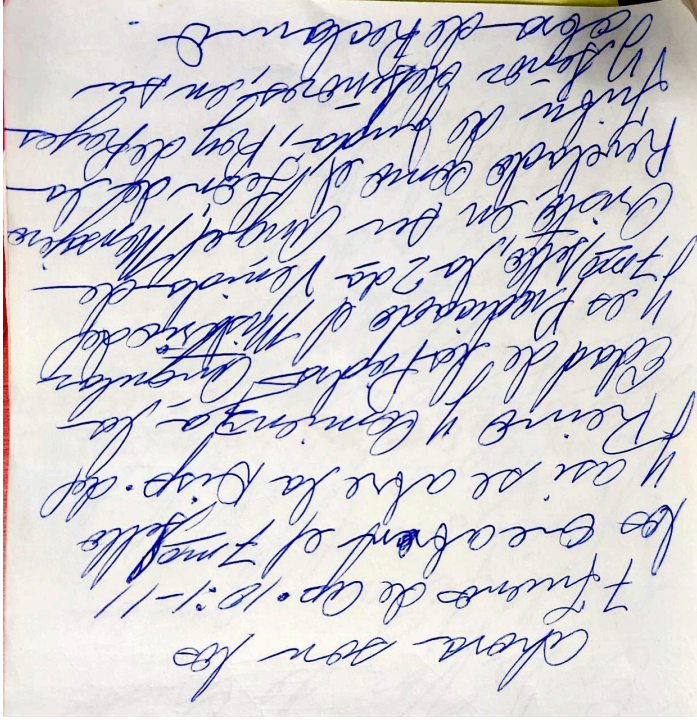 Ahora son los
7 truenos de Ap. 10:1-11
los que abren el 7mo Sello
y asi se abre la Disp. del
Reino y comienza la
Edad de la Piedra Angular
y es Predicado el Misterio del
7mo Sello, la 2da Venida de
Cristo en su Angel Mensajero
Revelado como el León de la
tribu de Juda, Rey de Reyes
y Señor de Señores, en su
obra de Reclamo